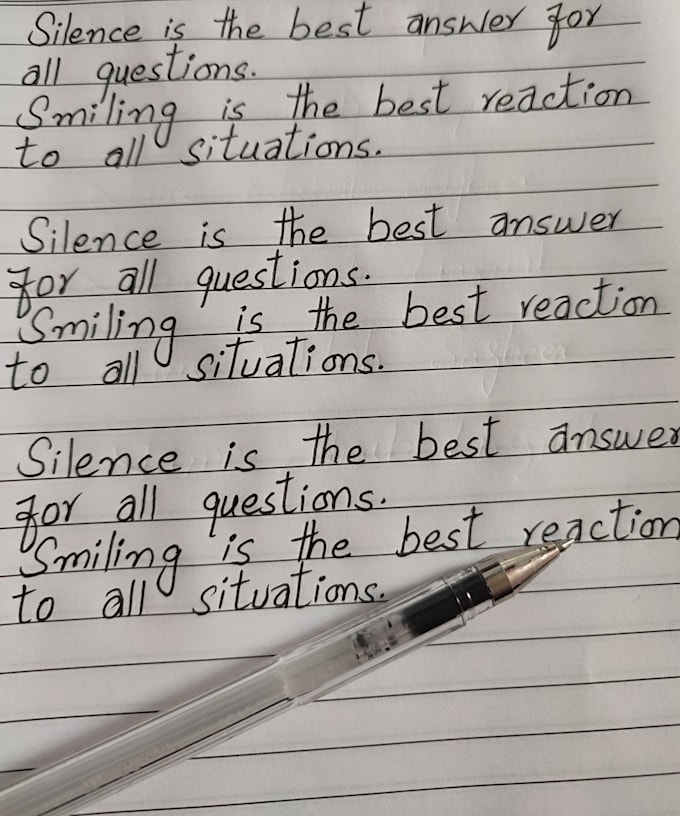 Silence is the best answer for
all questions.
Smiling is the best reaction
to all situations.
Silence is the best answer
for all questions.
Smiling is the best reaction
to all situations.
Silence is the best answer
for all questions.
Smiling is the best reaction
to all situations.